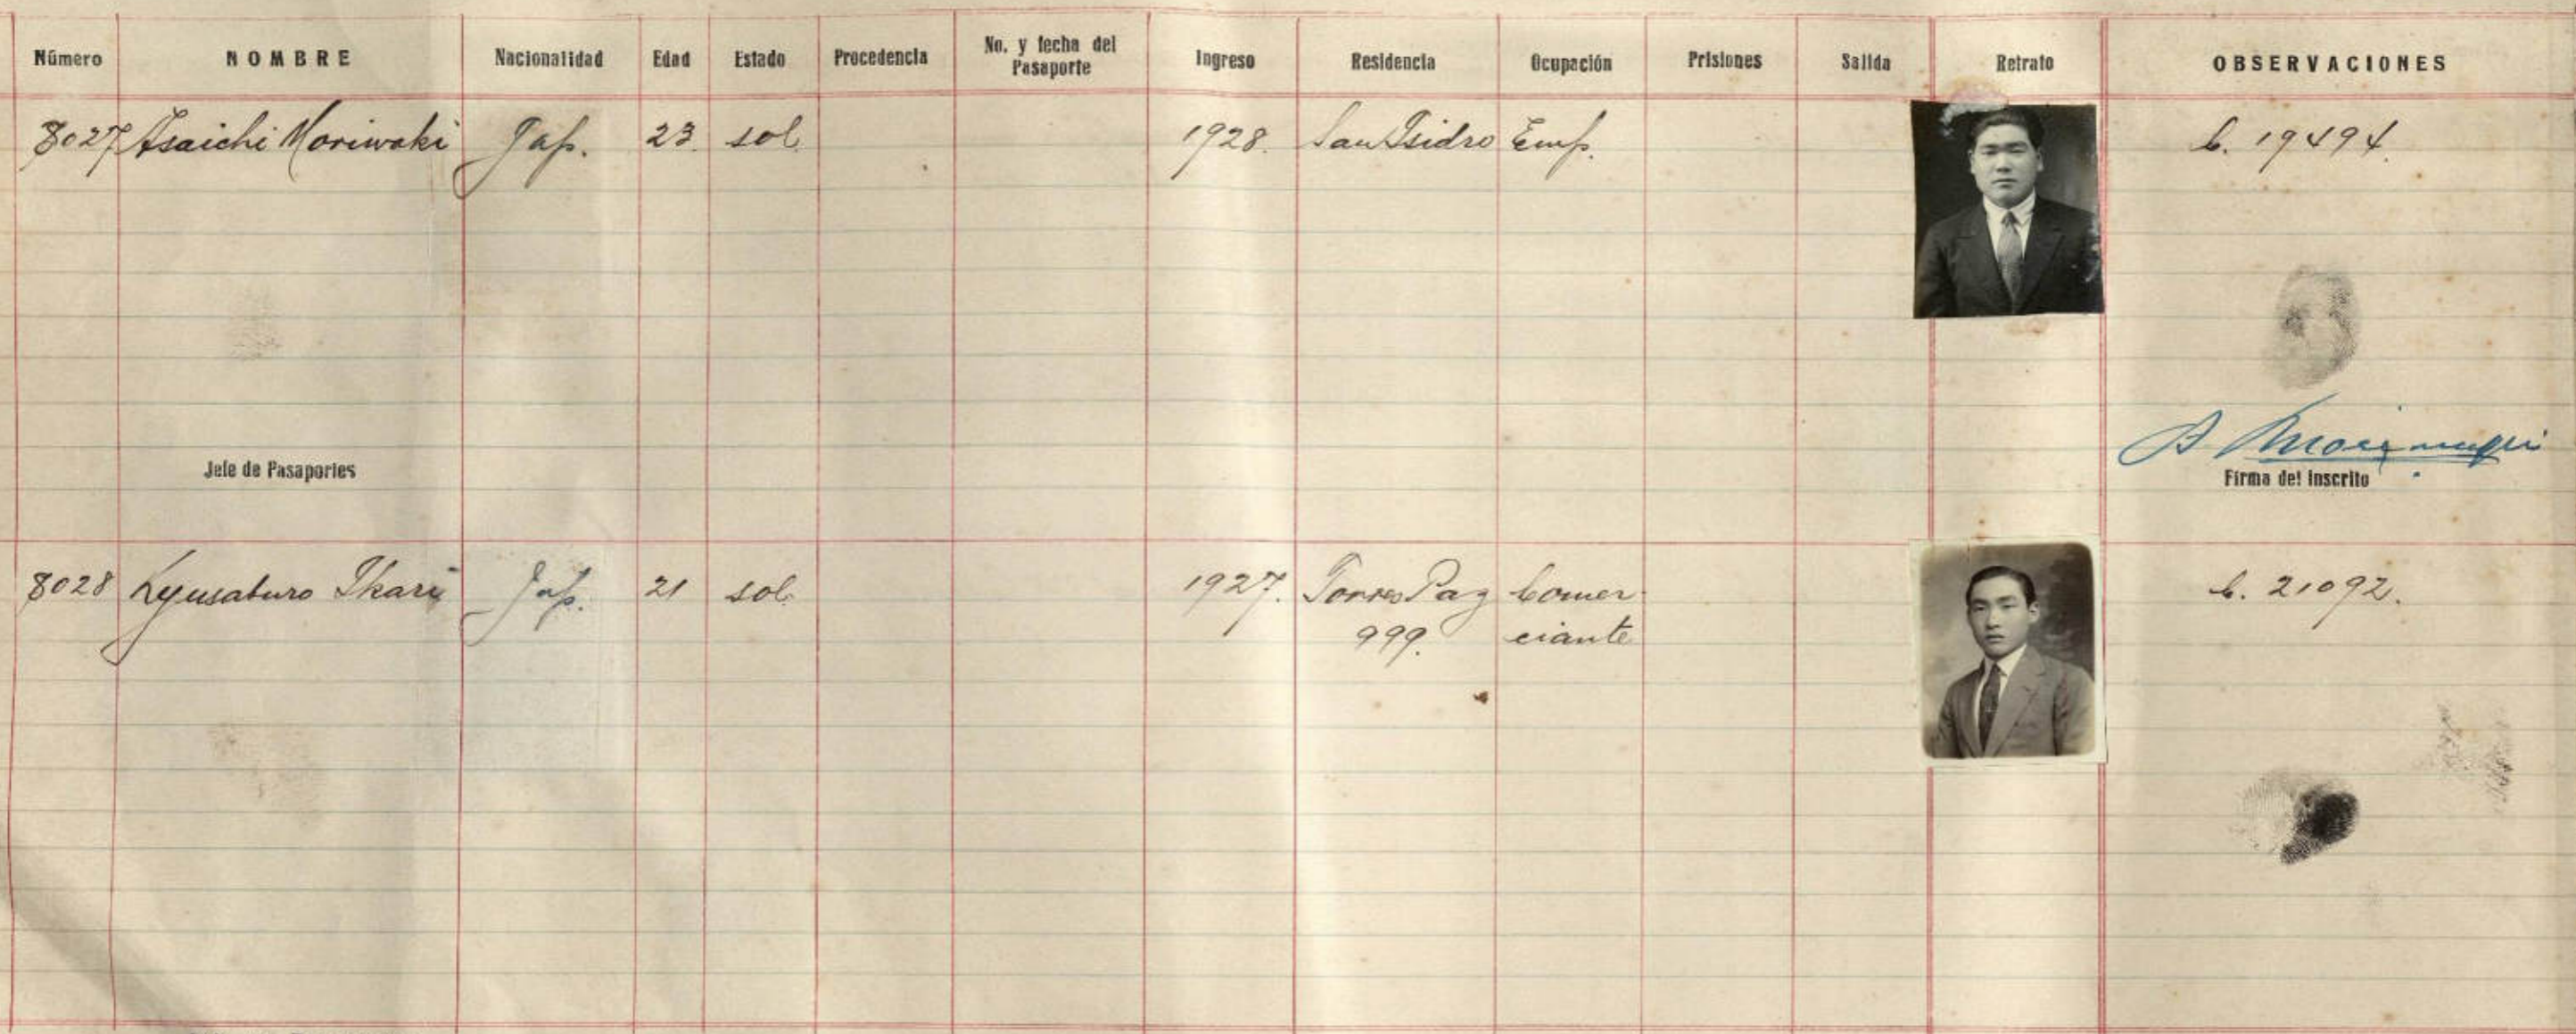 Número NOMBRE Nacionalidad Edad Estado Procedencia No. y fecha del Pasaporte Ingreso Residencia Ocupación Prisiones Salida Retrato OBSERVACIONES
8027 Asaichi Moriwaki Jap. 23 sol. 1928. San Isidro Emp. C. 19494.
Jefe de Pasaportes
Firma del inscrito
8028 Kyusaburo Ikari Jap. 21 sol. 1927. Torres Paz Comer-
999. ciante
C. 21092.